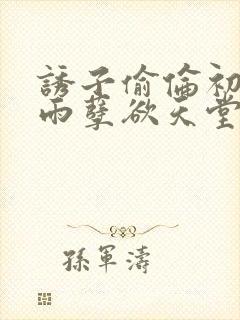 誘子偷倫初
雨孽欲天堂
孫軍濤